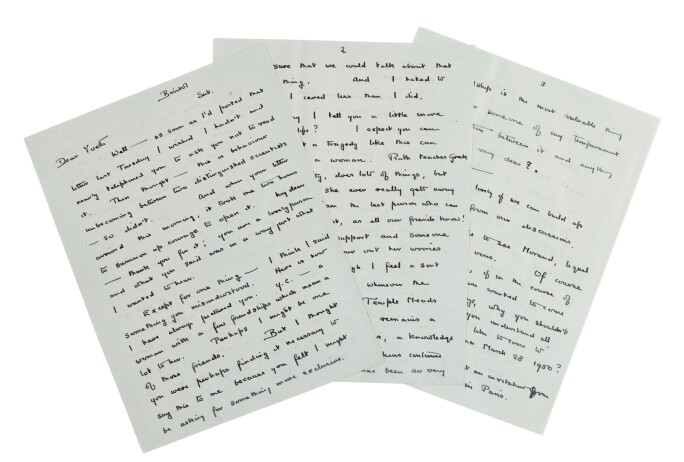 Bristol
Sat.
Dear Yvette
Well — as soon as I'd posted that
letter last Tuesday I wished I hadn't and
nearly telephoned you to ask you not to read
it. Then thought — this is behaviour
unbecoming between two distinguished scientists
— so didn't. And when your letter
arrived this morning, it took me two hours
to summon up courage to open it. My dear
— thank you for it; you are a lovely person
and what you said was in a way just what
I wanted to hear.
Except for one thing — I think I said
something you misunderstood. Here is how
I have always pictured you. Y.C. — a
woman with a few friendships which mean a
lot to her. Perhaps I might be one
of those friends. But I thought
you were perhaps finding it necessary to
say this to me because you felt I might
be asking for something more exclusive.
2
save that we could talk about that
thing. And I hated to
I cared less than I did.
I tell you a little more
? I expect you can
a tragedy like this can
a woman. Ruth teaches Greek
, does lots of things, but
she ever really gets away
am the last person who can
it, as all our friends know!
support and someone
out her worries
I feel a sort
whenever the
Temple Meads
remains a
, a knowledge
continue
has been so very
3
is the most valuable thing
someone of my temperament
between it and anything
very dear?
lovely if we can build up
from our
to see Morand,
. Of course
, if in the course of
wanted to come
, why you shouldn't
you understand all
like to come to
March 28 1950?
an invitation from
Paris.